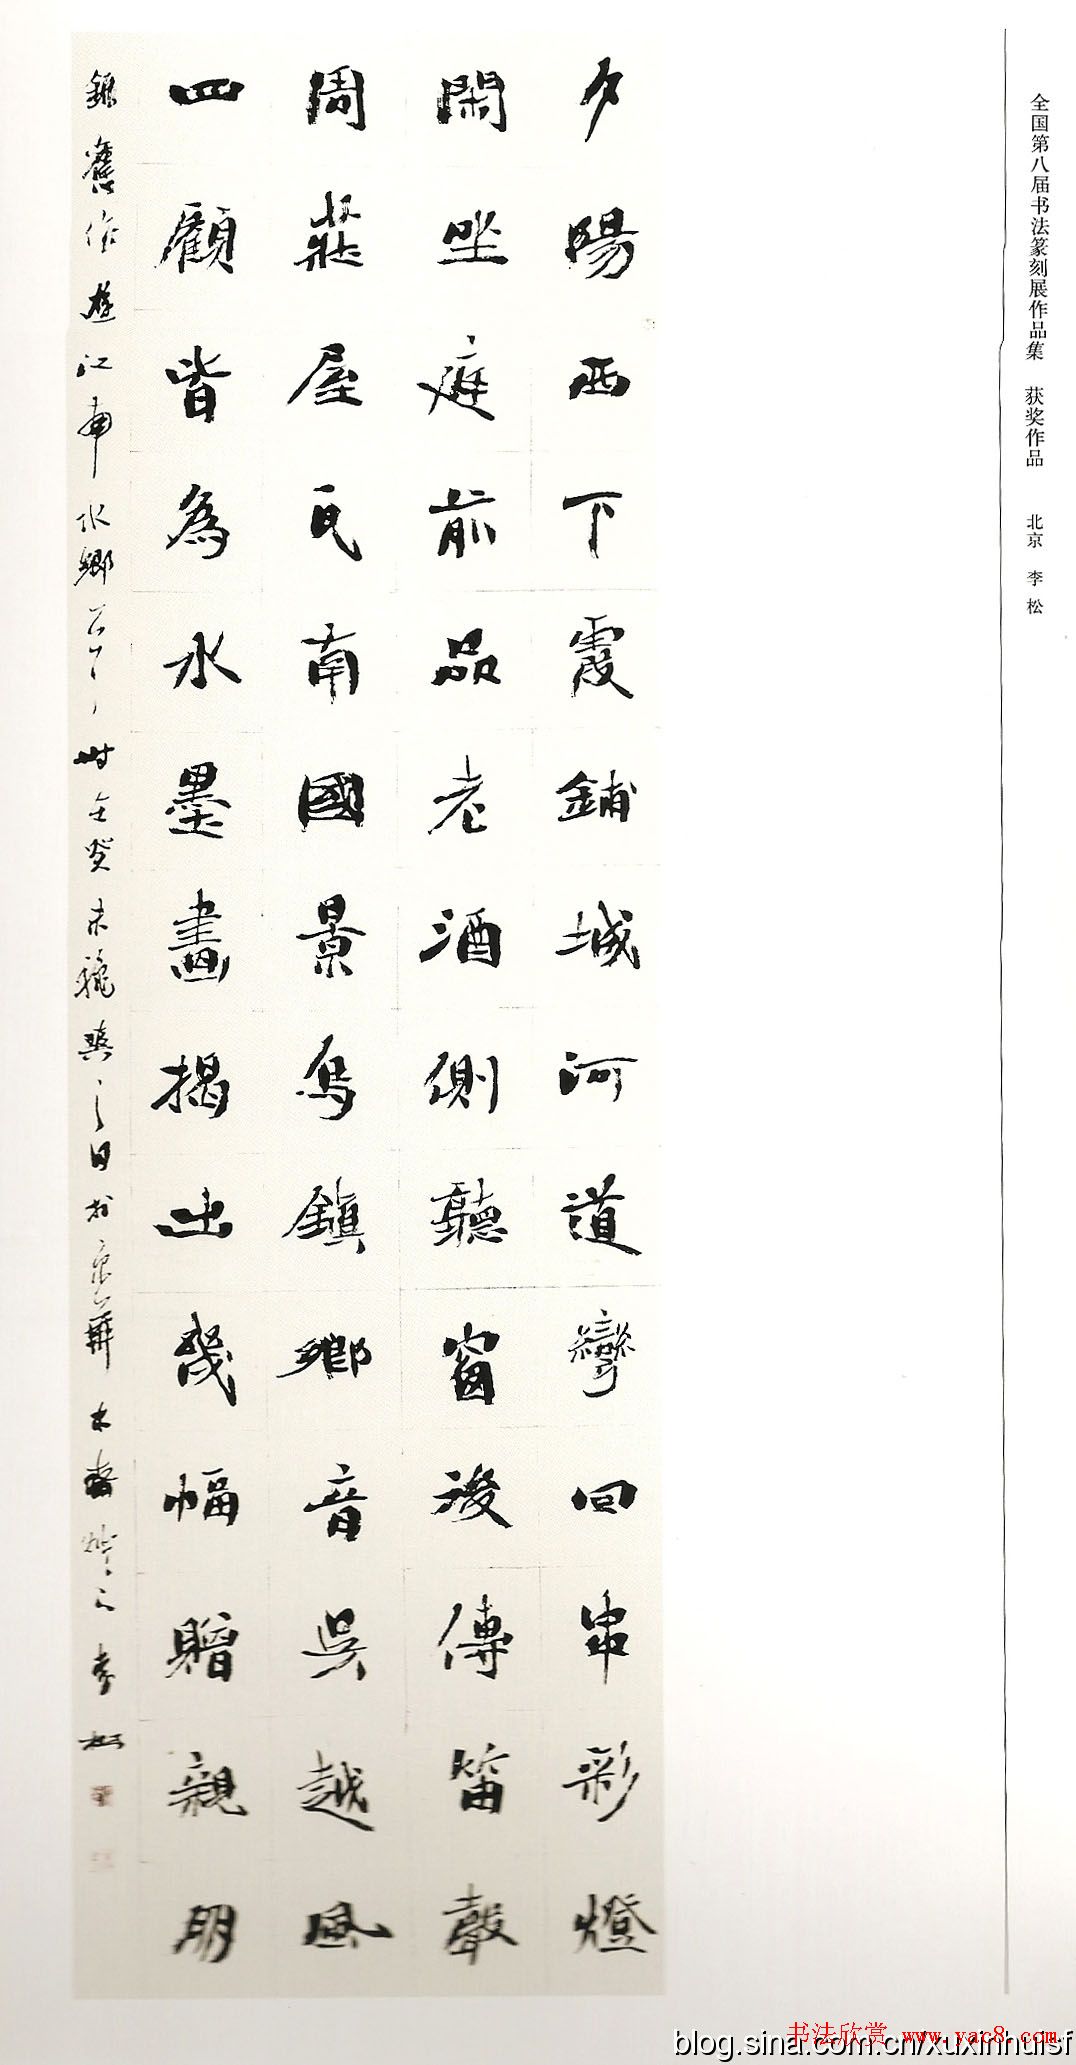 全国第八届书法篆刻展作品集 获奖作品 北京 李松
夕陽西下霞鋪城河道彎回串彩燈
閑坐庭前品老酒側聽窗後傳笛聲
周莊屋瓦南國景烏鎮鄉音吳越風
四顧皆為水墨畫揭出幾幅贈親朋
錄舊作遊江南水鄉 時在癸未龝之日於京華木齋燈下李松
书法欣赏 www.yac8.com
blog.sina.com.cn/xuxinhuisf